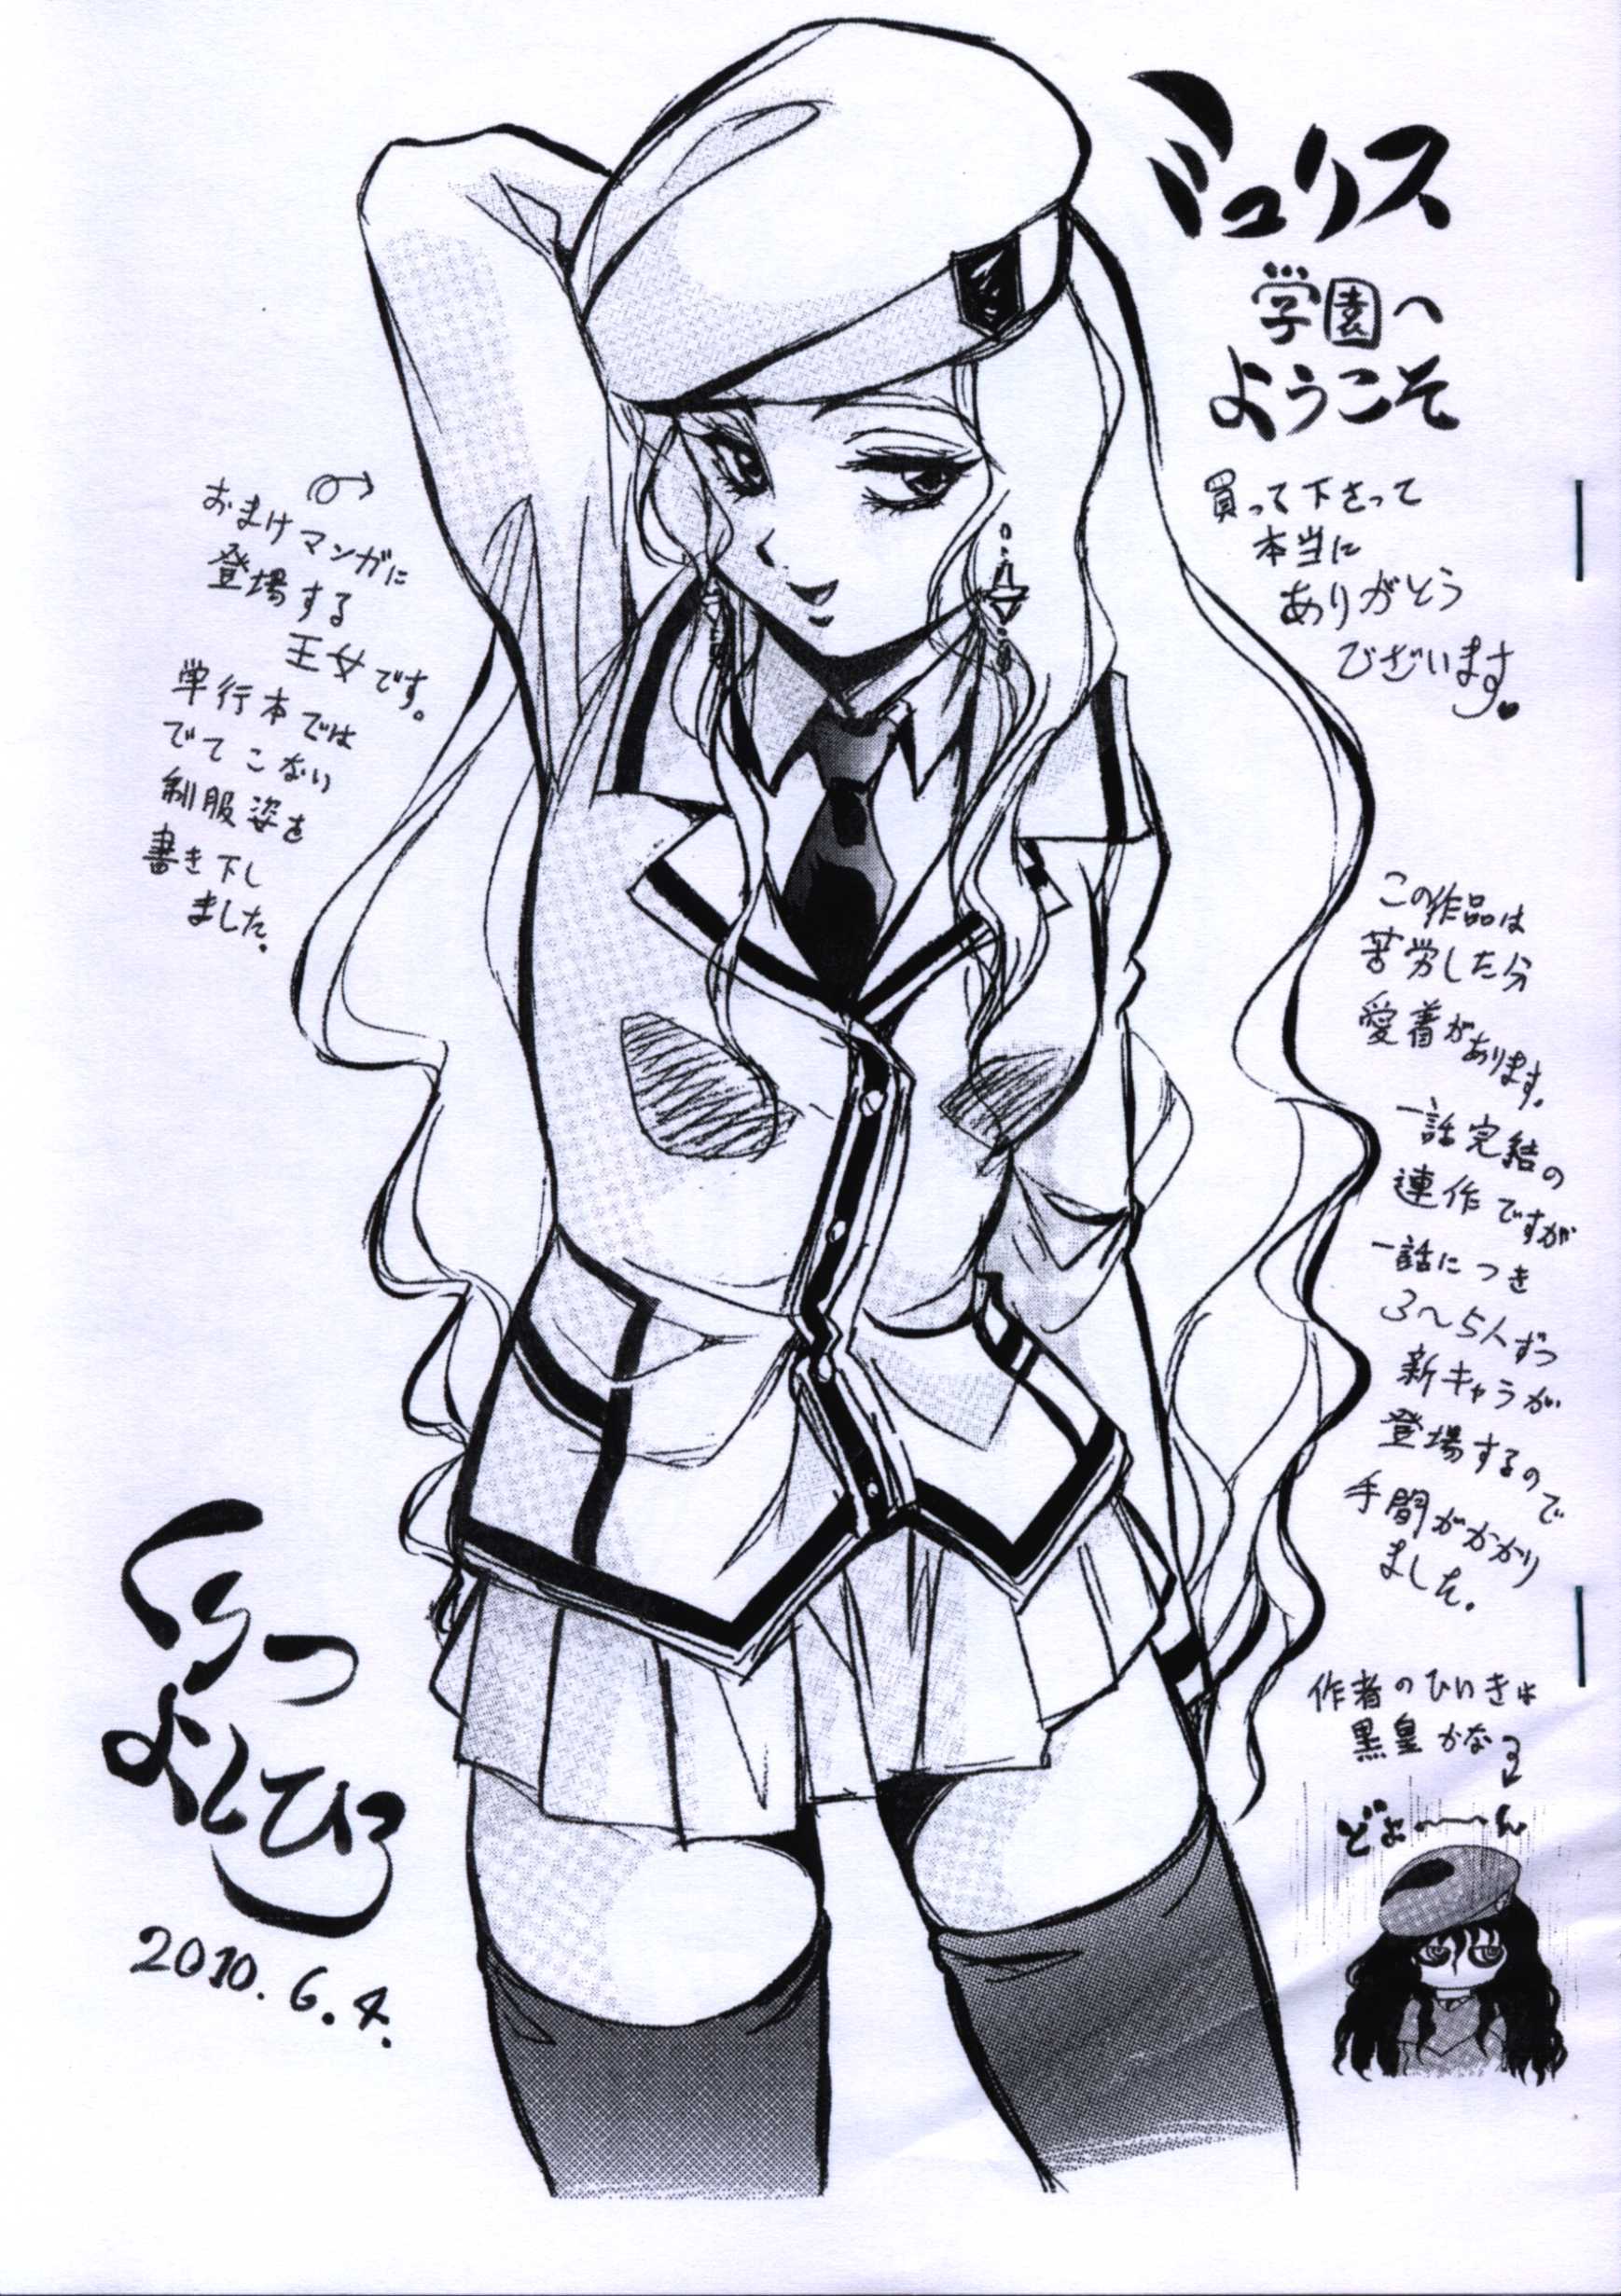 ミュリス
学園へ
ようこそ
買って下さって
本当に
ありがとう
ございます♥
おまけマンガに
登場する
王女です。
単行本では
でてこない
制服姿を
書き下し
ました。
この作品は
苦労した分
愛着があります。
一話完結の
連作ですが
一話につき
3〜5人ずつ
新キャラが
登場するので
手間がかかり
ました。
作者のひいきは
黒皇かな
どよ〜〜ん
よしひこ
2010.6.4.